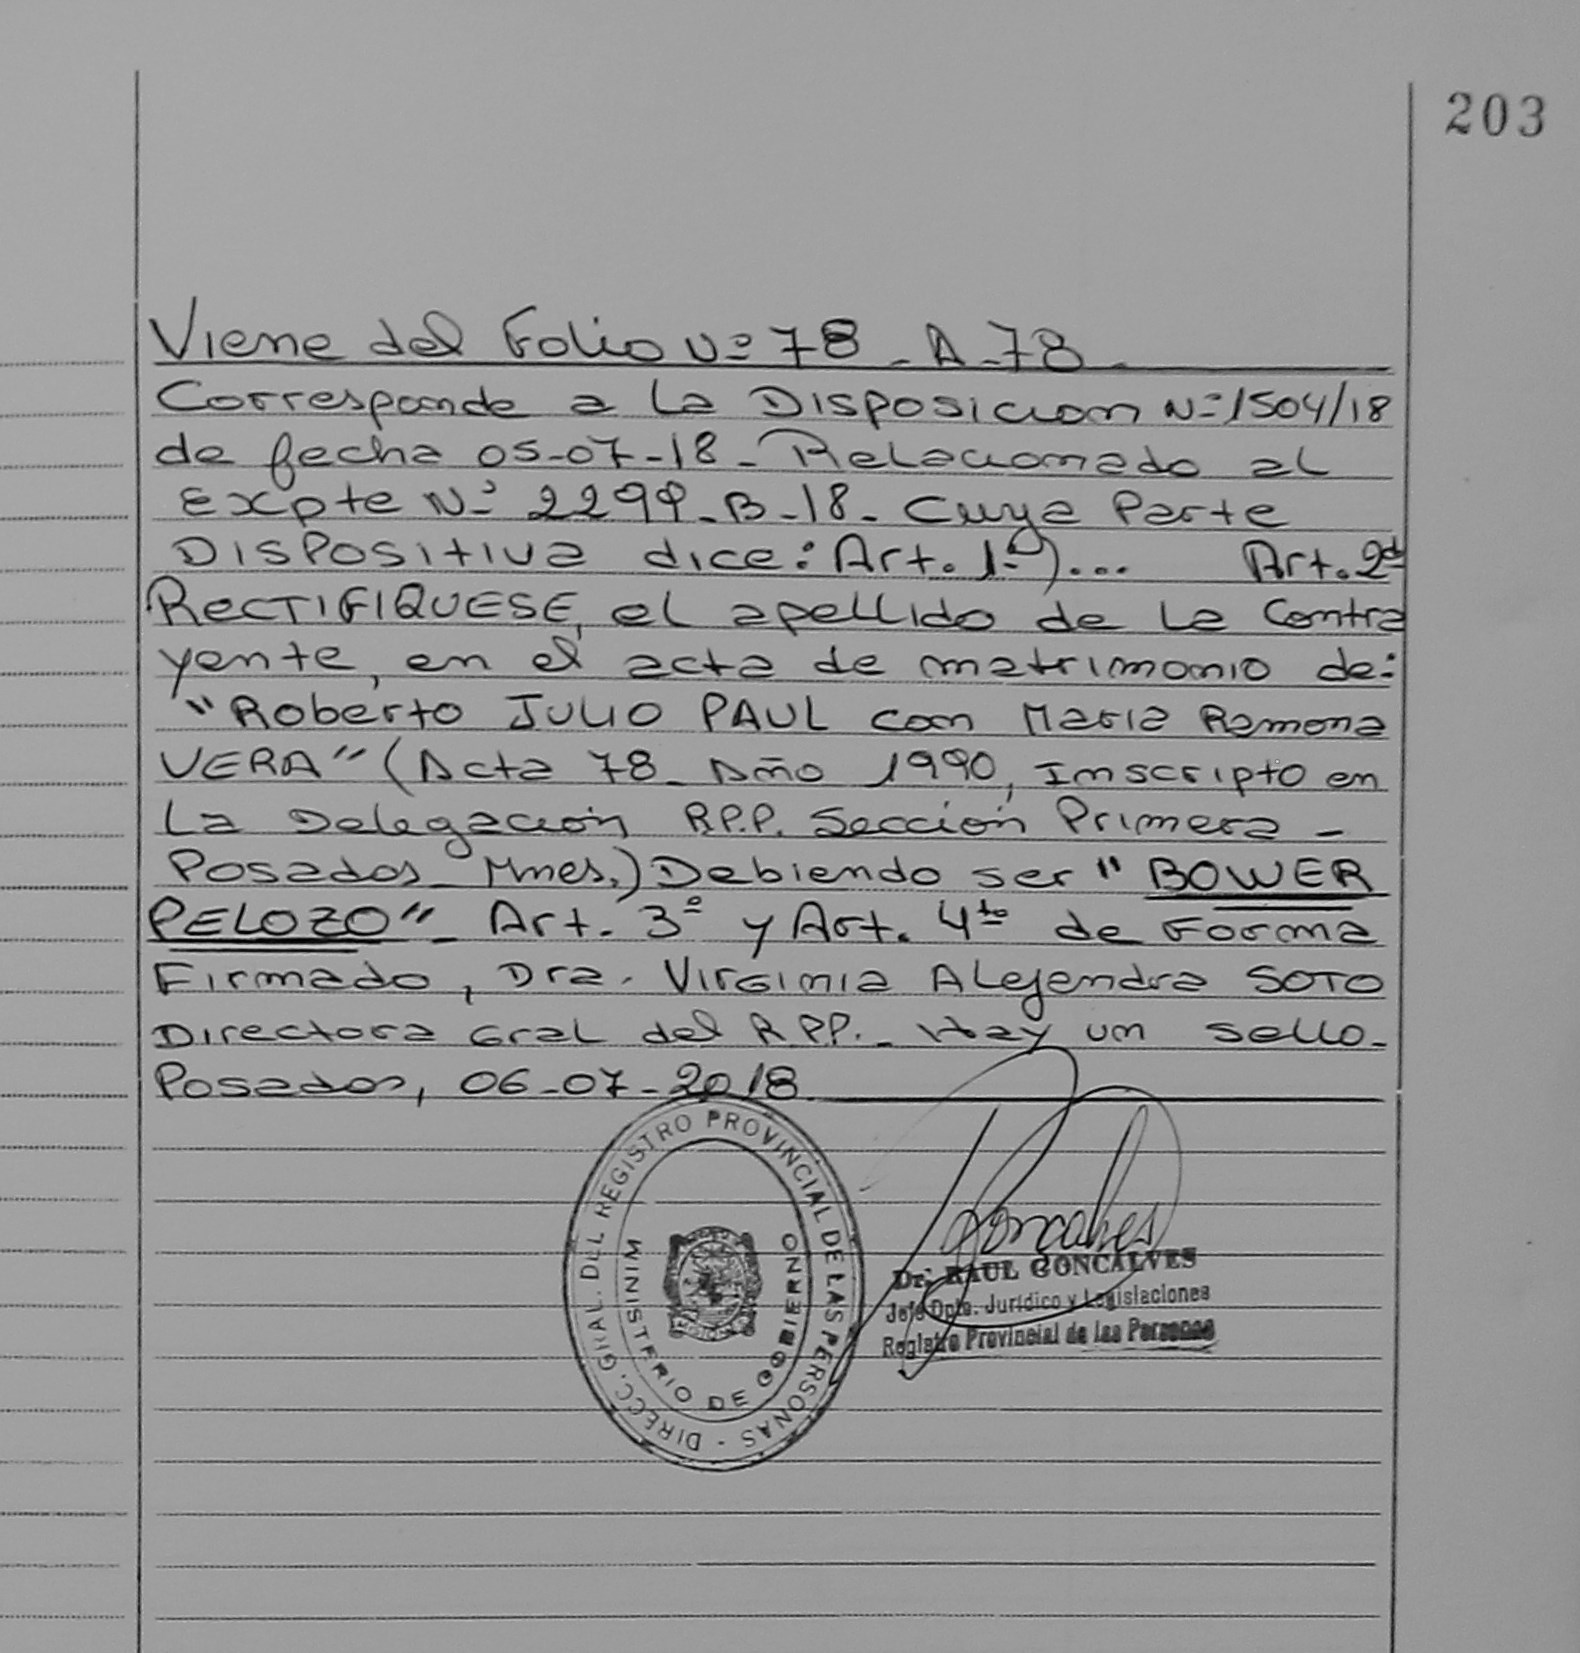 203
Viene del Folio Nº 78 - A - 78 -
Corresponde a la Disposicion Nº 1504/18
de fecha 05-07-18 - Relacionado al
Expte Nº 2299-B-18 - Cuya Parte
Dispositiva dice: Art. 1º)... Art. 2do
RECTIFIQUESE, el apellido de la Contra
yente, en el acta de matrimonio de:
"Roberto JULIO PAUL con Maria Ramona
VERA" (Acta 78 - Año 1990, Inscripto en
La Delegación R.P.P. Sección Primera -
Posadas - Mnes.) Debiendo ser "BOWER
PELOZO" - Art. 3º y Art. 4to de Forma
Firmado, Dra. Virginia Alejandra SOTO
Directora Gral del R.P.P. - Hay un sello -
Posadas, 06-07-2018
DIRECC. GRAL. DEL REGISTRO PROVINCIAL DE LAS PERSONAS -
MINISTERIO DE GOBIERNO
Goncalves
Dr. RAUL GONCALVES
Jefe Dpto. Jurídico y Legislaciones
Registro Provincial de las Personas